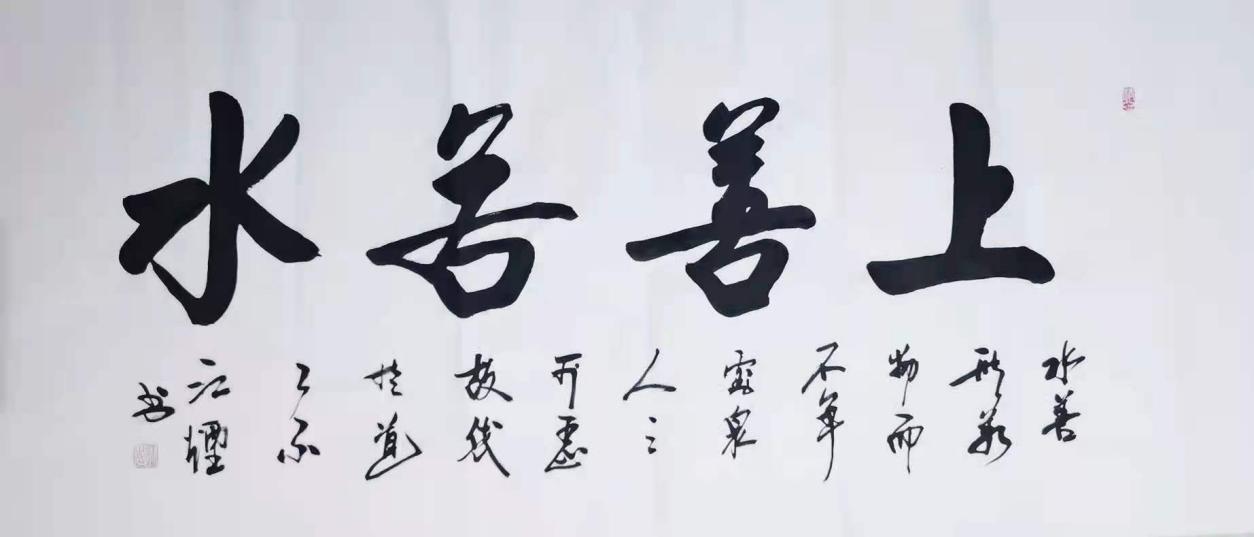 上善若水
水善
利萬
物而
不争
處衆
人之
所惡
故幾
於道
书